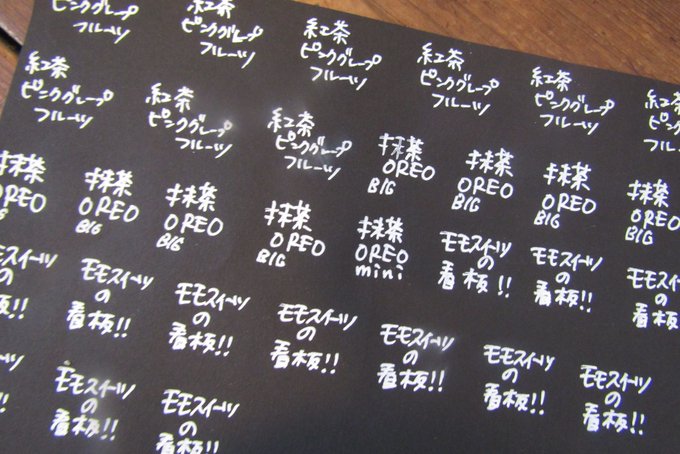 ピンクグレープ
フルーツ
紅茶
ピンクグレープ
フルーツ
紅茶
ピンクグレープ
フルーツ
紅茶
ピンクグレープ
フルーツ
紅茶
ピンクグレープ
フルーツ
紅茶
ピンクグレープ
フルーツ
紅茶
ピンクグレープ
フルーツ
紅茶
ピンクグレープ
フルーツ
抹茶
OREO
BIG
抹茶
OREO
BIG
抹茶
OREO
BIG
抹茶
OREO
BIG
抹茶
OREO
抹茶
OREO
BIG
抹茶
OREO
BIG
抹茶
OREO
BIG
抹茶
OREO
mini
モモスイーツ
の
看板!!
モモスイーツ
の
看板!!
モモスイーツ
の
看板!!
スイーツ
の
看板!!
モモスイーツ
の
看板!!
モモスイーツ
の
看板!!
モモスイーツ
の
看板!!
モモスイーツ
の
看板!!
モモスイーツ
の
看板!!
モモスイーツ
の
看板!!
モモスイーツ
の
看板!!
モモスイーツ
の
看板!!